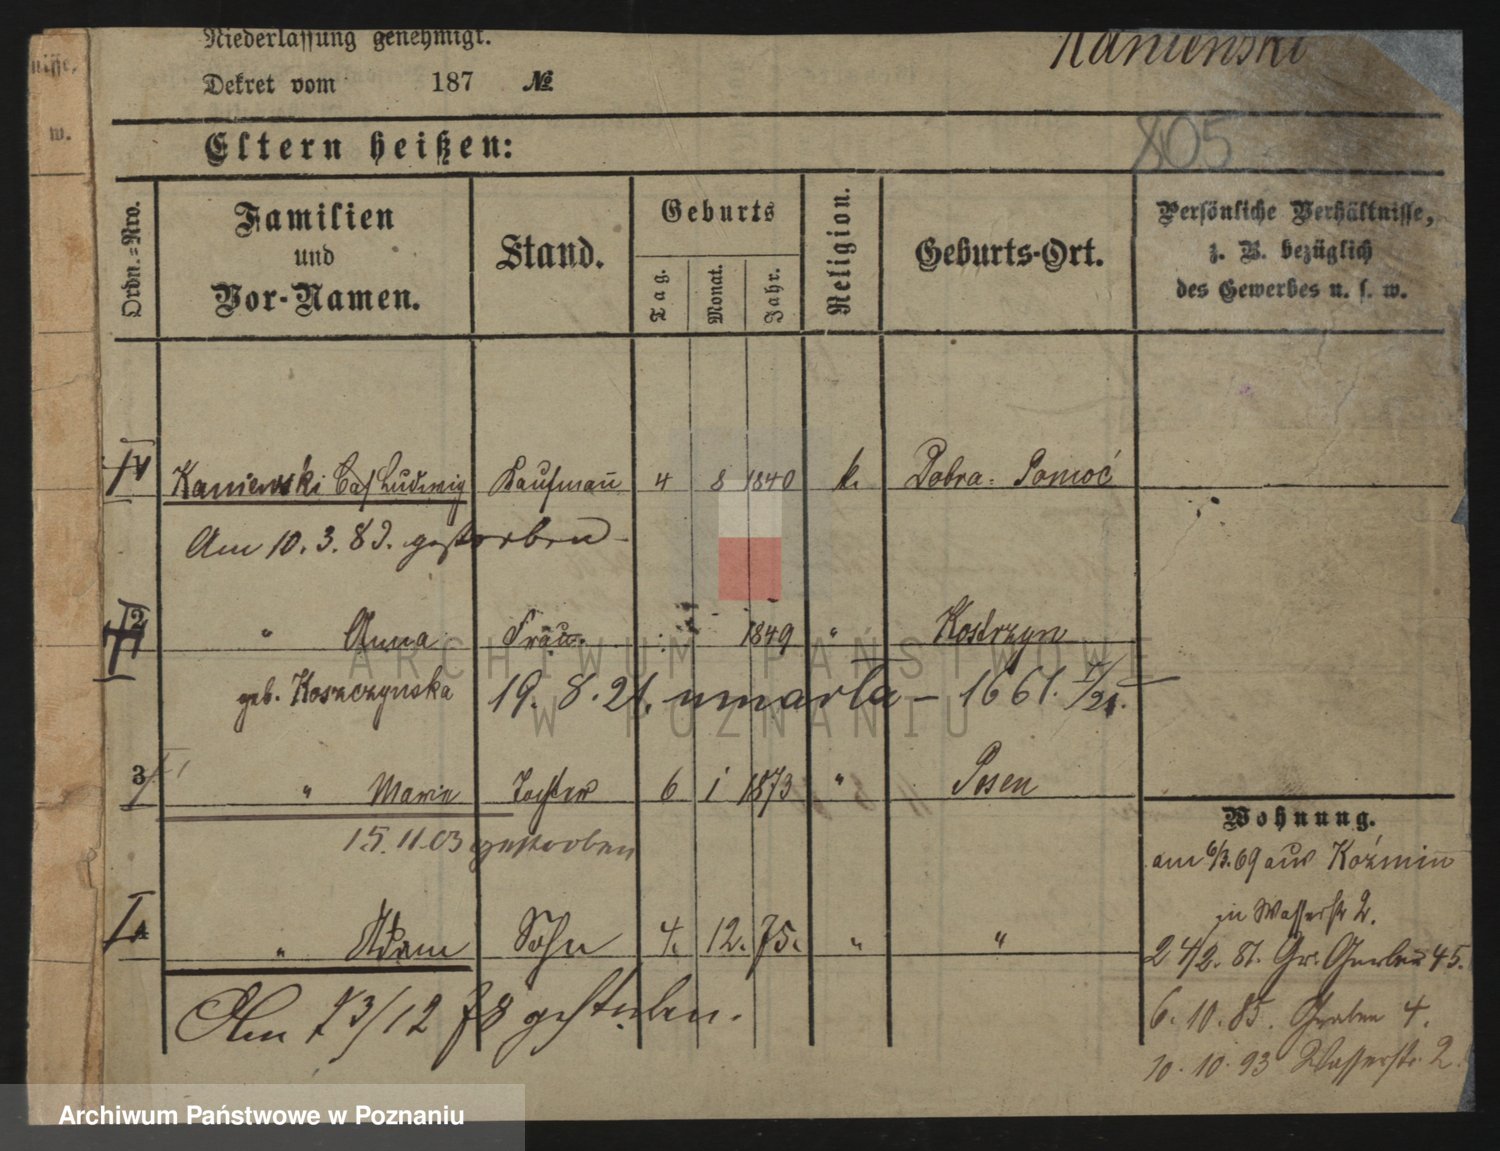 Niederlassung genehmigt.
Dekret vom 187 №
Kaniewski
805
Eltern heißen:
Ordn.-Nro.
Familien
und
Vor-Namen.
Stand.
Geburts
Tag. Monat. Jahr.
Religion.
Geburts-Ort.
Persönliche Verhältnisse,
z. B. bezüglich
des Gewerbes u. s. w.
nisse,
w.
1 Kaniewski Ludwig Kaufmann 4 8 1840 k. Dobra Pomoć
Am 10. 3. 89. gestorben
2 " Anna Frau. 1849 " Kostrzyn
geb. Koszczynska 19. 8. 21. umarła – 1661. V/21.
3 " Marie Tochter 6 1 1873 " Posen
15.11.03 gestorben
4 " Adam Sohn 4. 12. 75. " "
Am 23/12 78 gestorben.
Wohnung.
am 6/3.69 aus Koźmin
in Wasserstr 2.
24/2. 81. Gr. Gerber 45.
6. 10. 85. Graben 4.
10. 10. 93 Wasserstr. 2.
ARCHIWUM PAŃSTWOWE
W POZNANIU
Archiwum Państwowe w Poznaniu